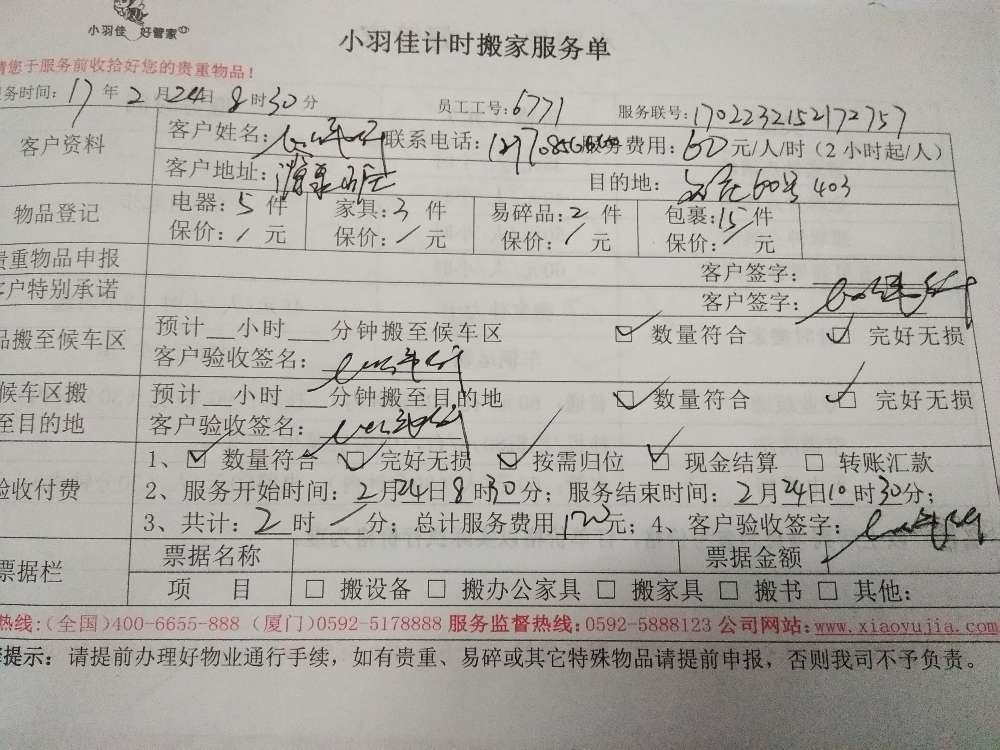 小羽佳 好管家
小羽佳计时搬家服务单
请您于服务前收拾好您的贵重物品！
服务时间：17年2月24日8时30分 员工工号：6771 服务联号：1702232152172757
客户资料
客户姓名： 联系电话： 服务费用：60元/人/时（2小时起/人）
客户地址： 目的地：60号403
物品登记
电器：5件 家具：3件 易碎品：2件 包裹：15件
保价：/元 保价：/元 保价：/元 保价：/元
贵重物品申报 客户签字：
客户特别承诺 客户签字：
品搬至候车区
预计__小时___分钟搬至候车区 ☑ 数量符合 ☑ 完好无损
客户验收签名：
候车区搬至目的地
预计__小时___分钟搬至目的地 ☑ 数量符合 ☑ 完好无损
客户验收签名：
验收付费
1、☑ 数量符合 ☑ 完好无损 ☑ 按需归位 ☑ 现金结算 □ 转账汇款
2、服务开始时间：2月24日8时30分；服务结束时间：2月24日10时30分；
3、共计：2时/分；总计服务费用120元；4、客户验收签字：
票据栏
票据名称 票据金额
项 目 □ 搬设备 □ 搬办公家具 □ 搬家具 □ 搬书 □ 其他：
热线：(全国)400-6655-888（厦门)0592-5178888 服务监督热线：0592-5888123 公司网站：www.xiaoyujia.com
提示：请提前办理好物业通行手续，如有贵重、易碎或其它特殊物品请提前申报，否则我司不予负责。